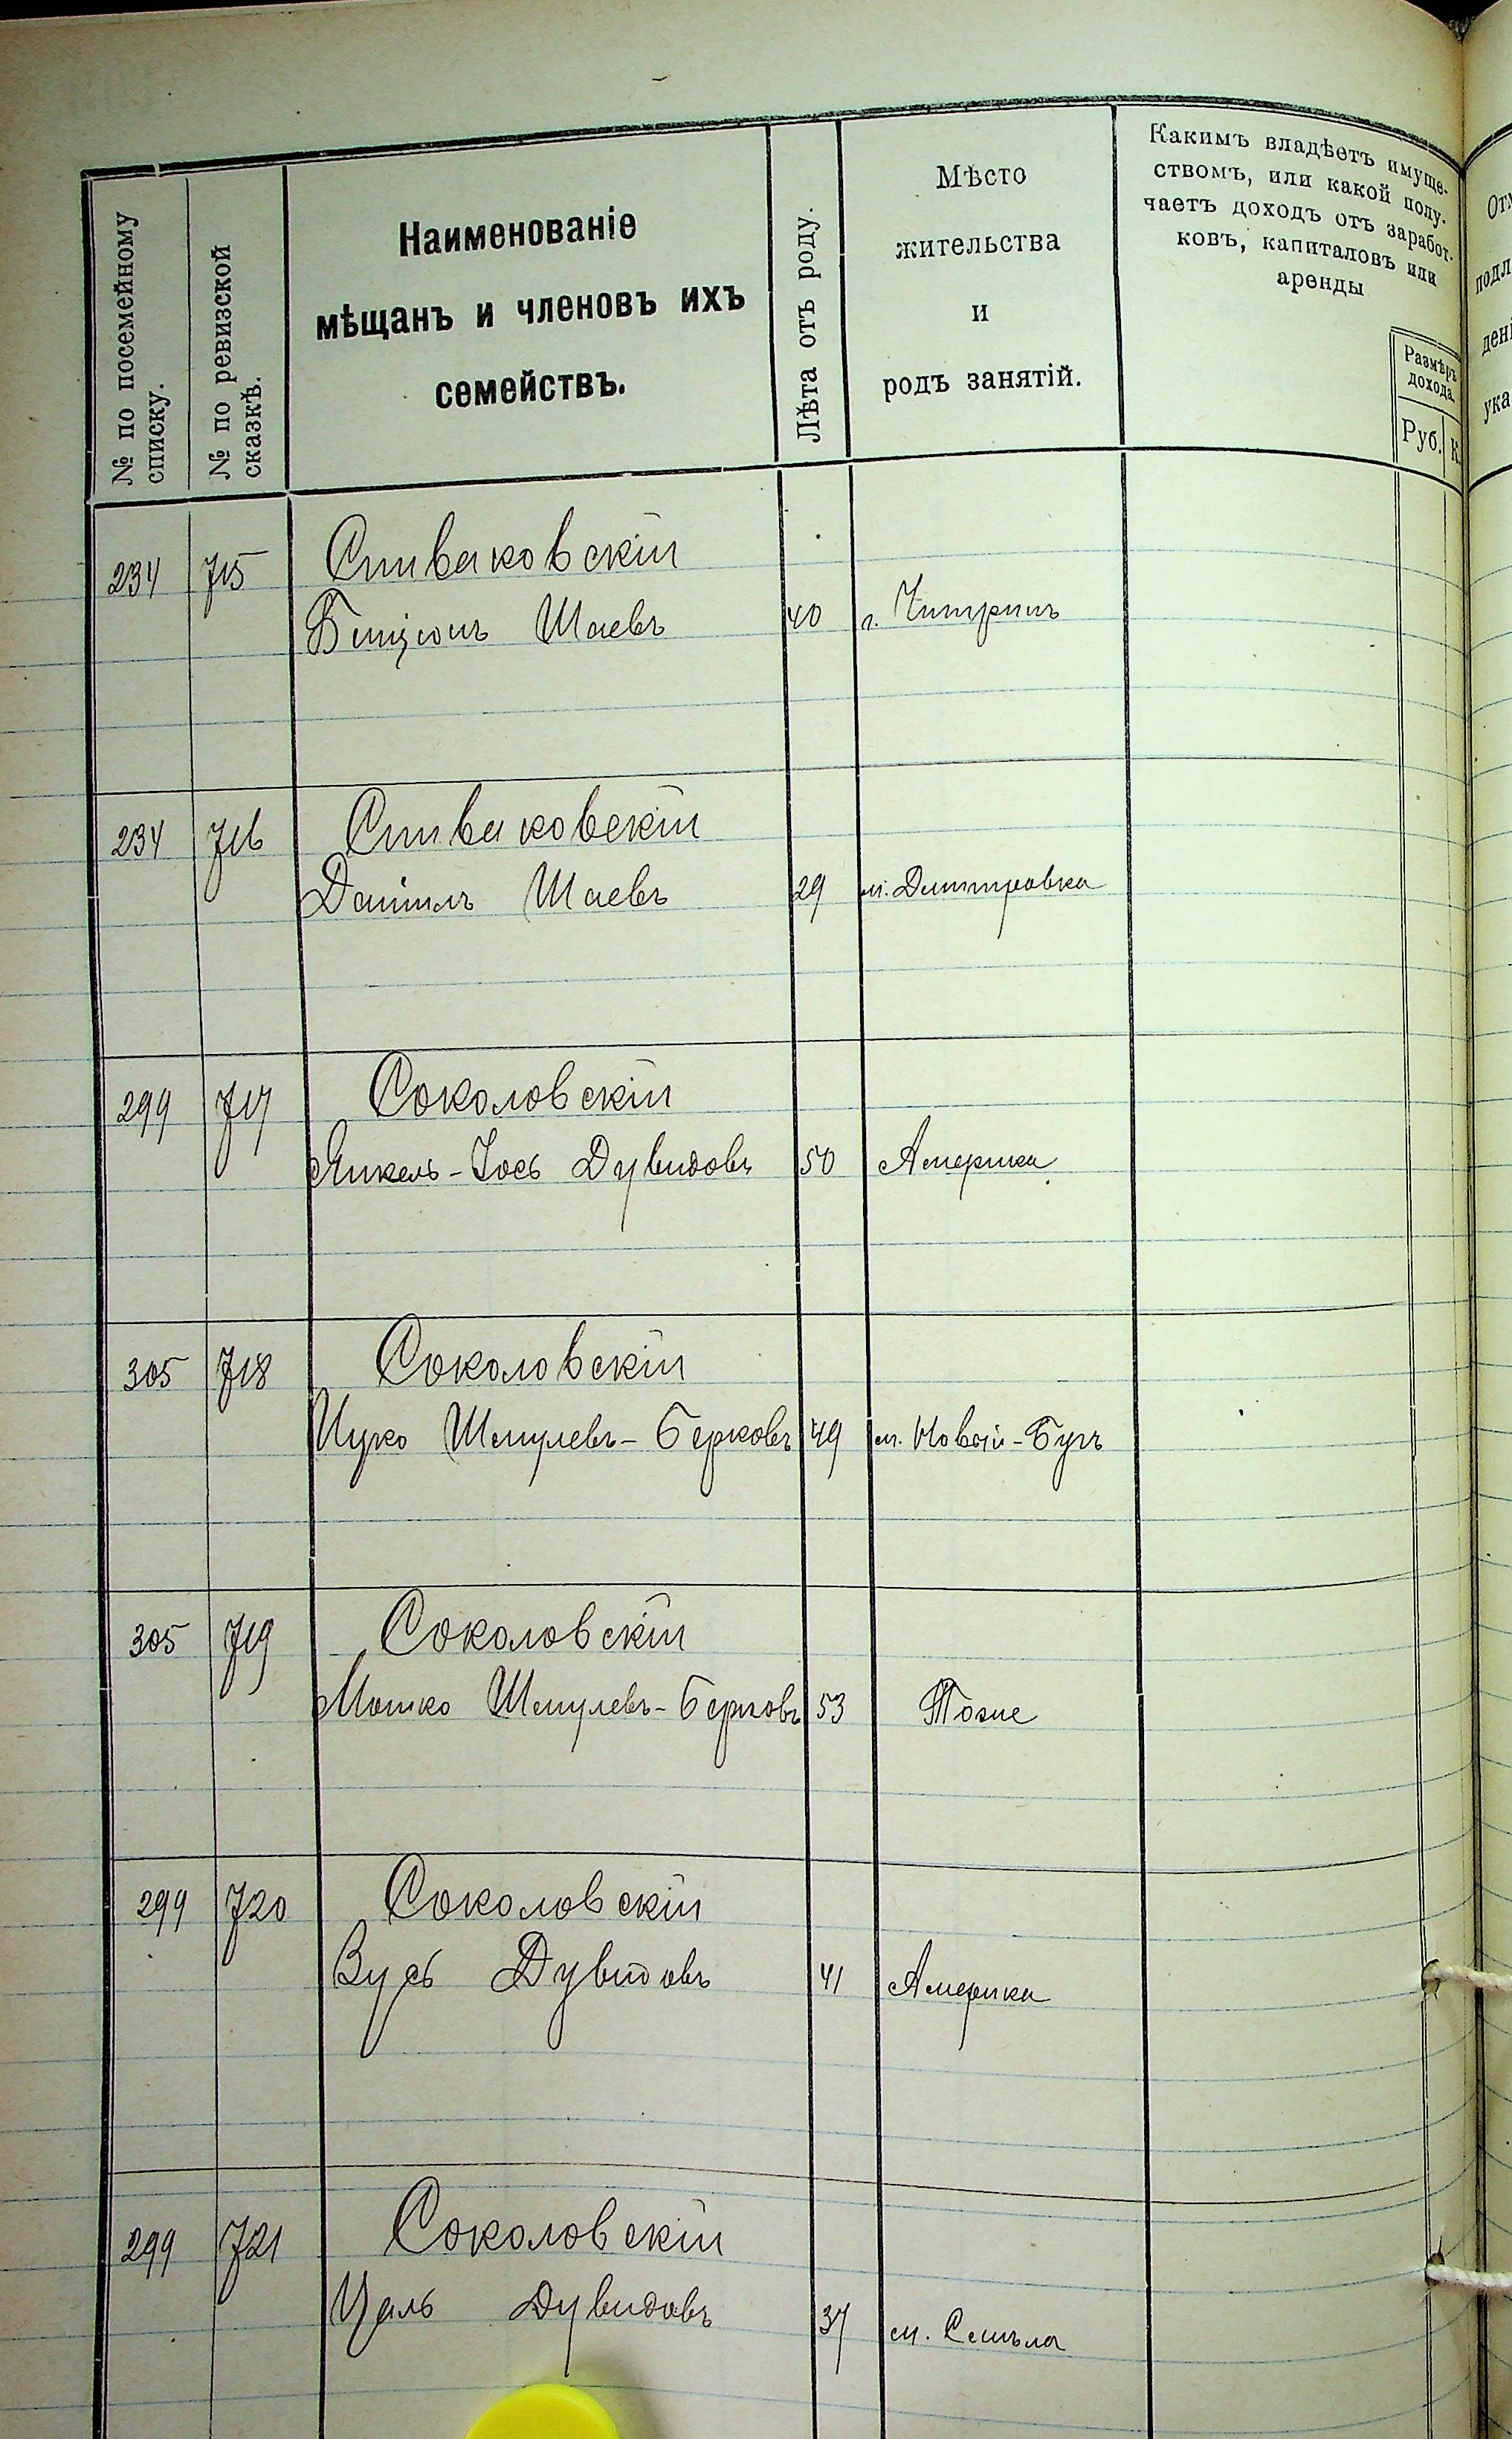 № по посемейному
списку.
№ по ревизской
сказкѣ.
Наименованіе
мѣщанъ и членовъ ихъ
семействъ.
Лѣта отъ роду.
Мѣсто
жительства
и
родъ занятій.
Какимъ владѣетъ имуще-
ствомъ, или какой полу-
чаетъ доходъ отъ заработ-
ковъ, капиталовъ или
аренды
Размѣръ
дохода.
Руб. К.
234 715 Спиваковскій
Бенціонъ Шаевъ 40 г. Чигиринъ
234 716 Спиваковскій
Даніилъ Шаевъ 29 м. Дмитровка
299 717 Соколовскій
Янкель-Іось Дувидовъ 50 Америка
305 718 Соколовскій
Ицко Шмулевъ-Берковъ 49 м. Новый-Бугъ
305 719 Соколовскій
Мошко Шмулевъ-Берковъ 53 Тоже
299 720 Соколовскій
Зусь Дувидовъ 41 Америка
299 721 Соколовскій
Цаль Дувидовъ 37 м. Смѣла